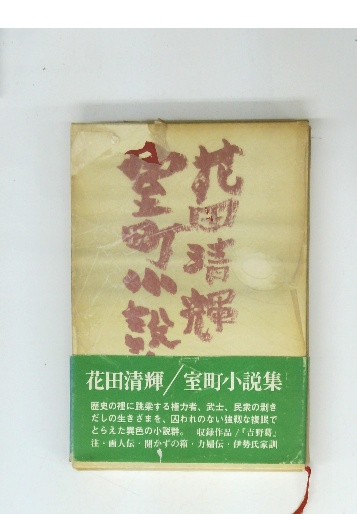 花田清輝
室町小説集
花田清輝/室町小説集
歴史の裡に跳梁する権力者、武士、民衆の剥き
だしの生きざまを、囚われのない強靱な複眼で
とらえた異色の小説群。 収録作品/「吉野葛」
注・画人伝・開かずの箱・力婦伝・伊勢氏家訓